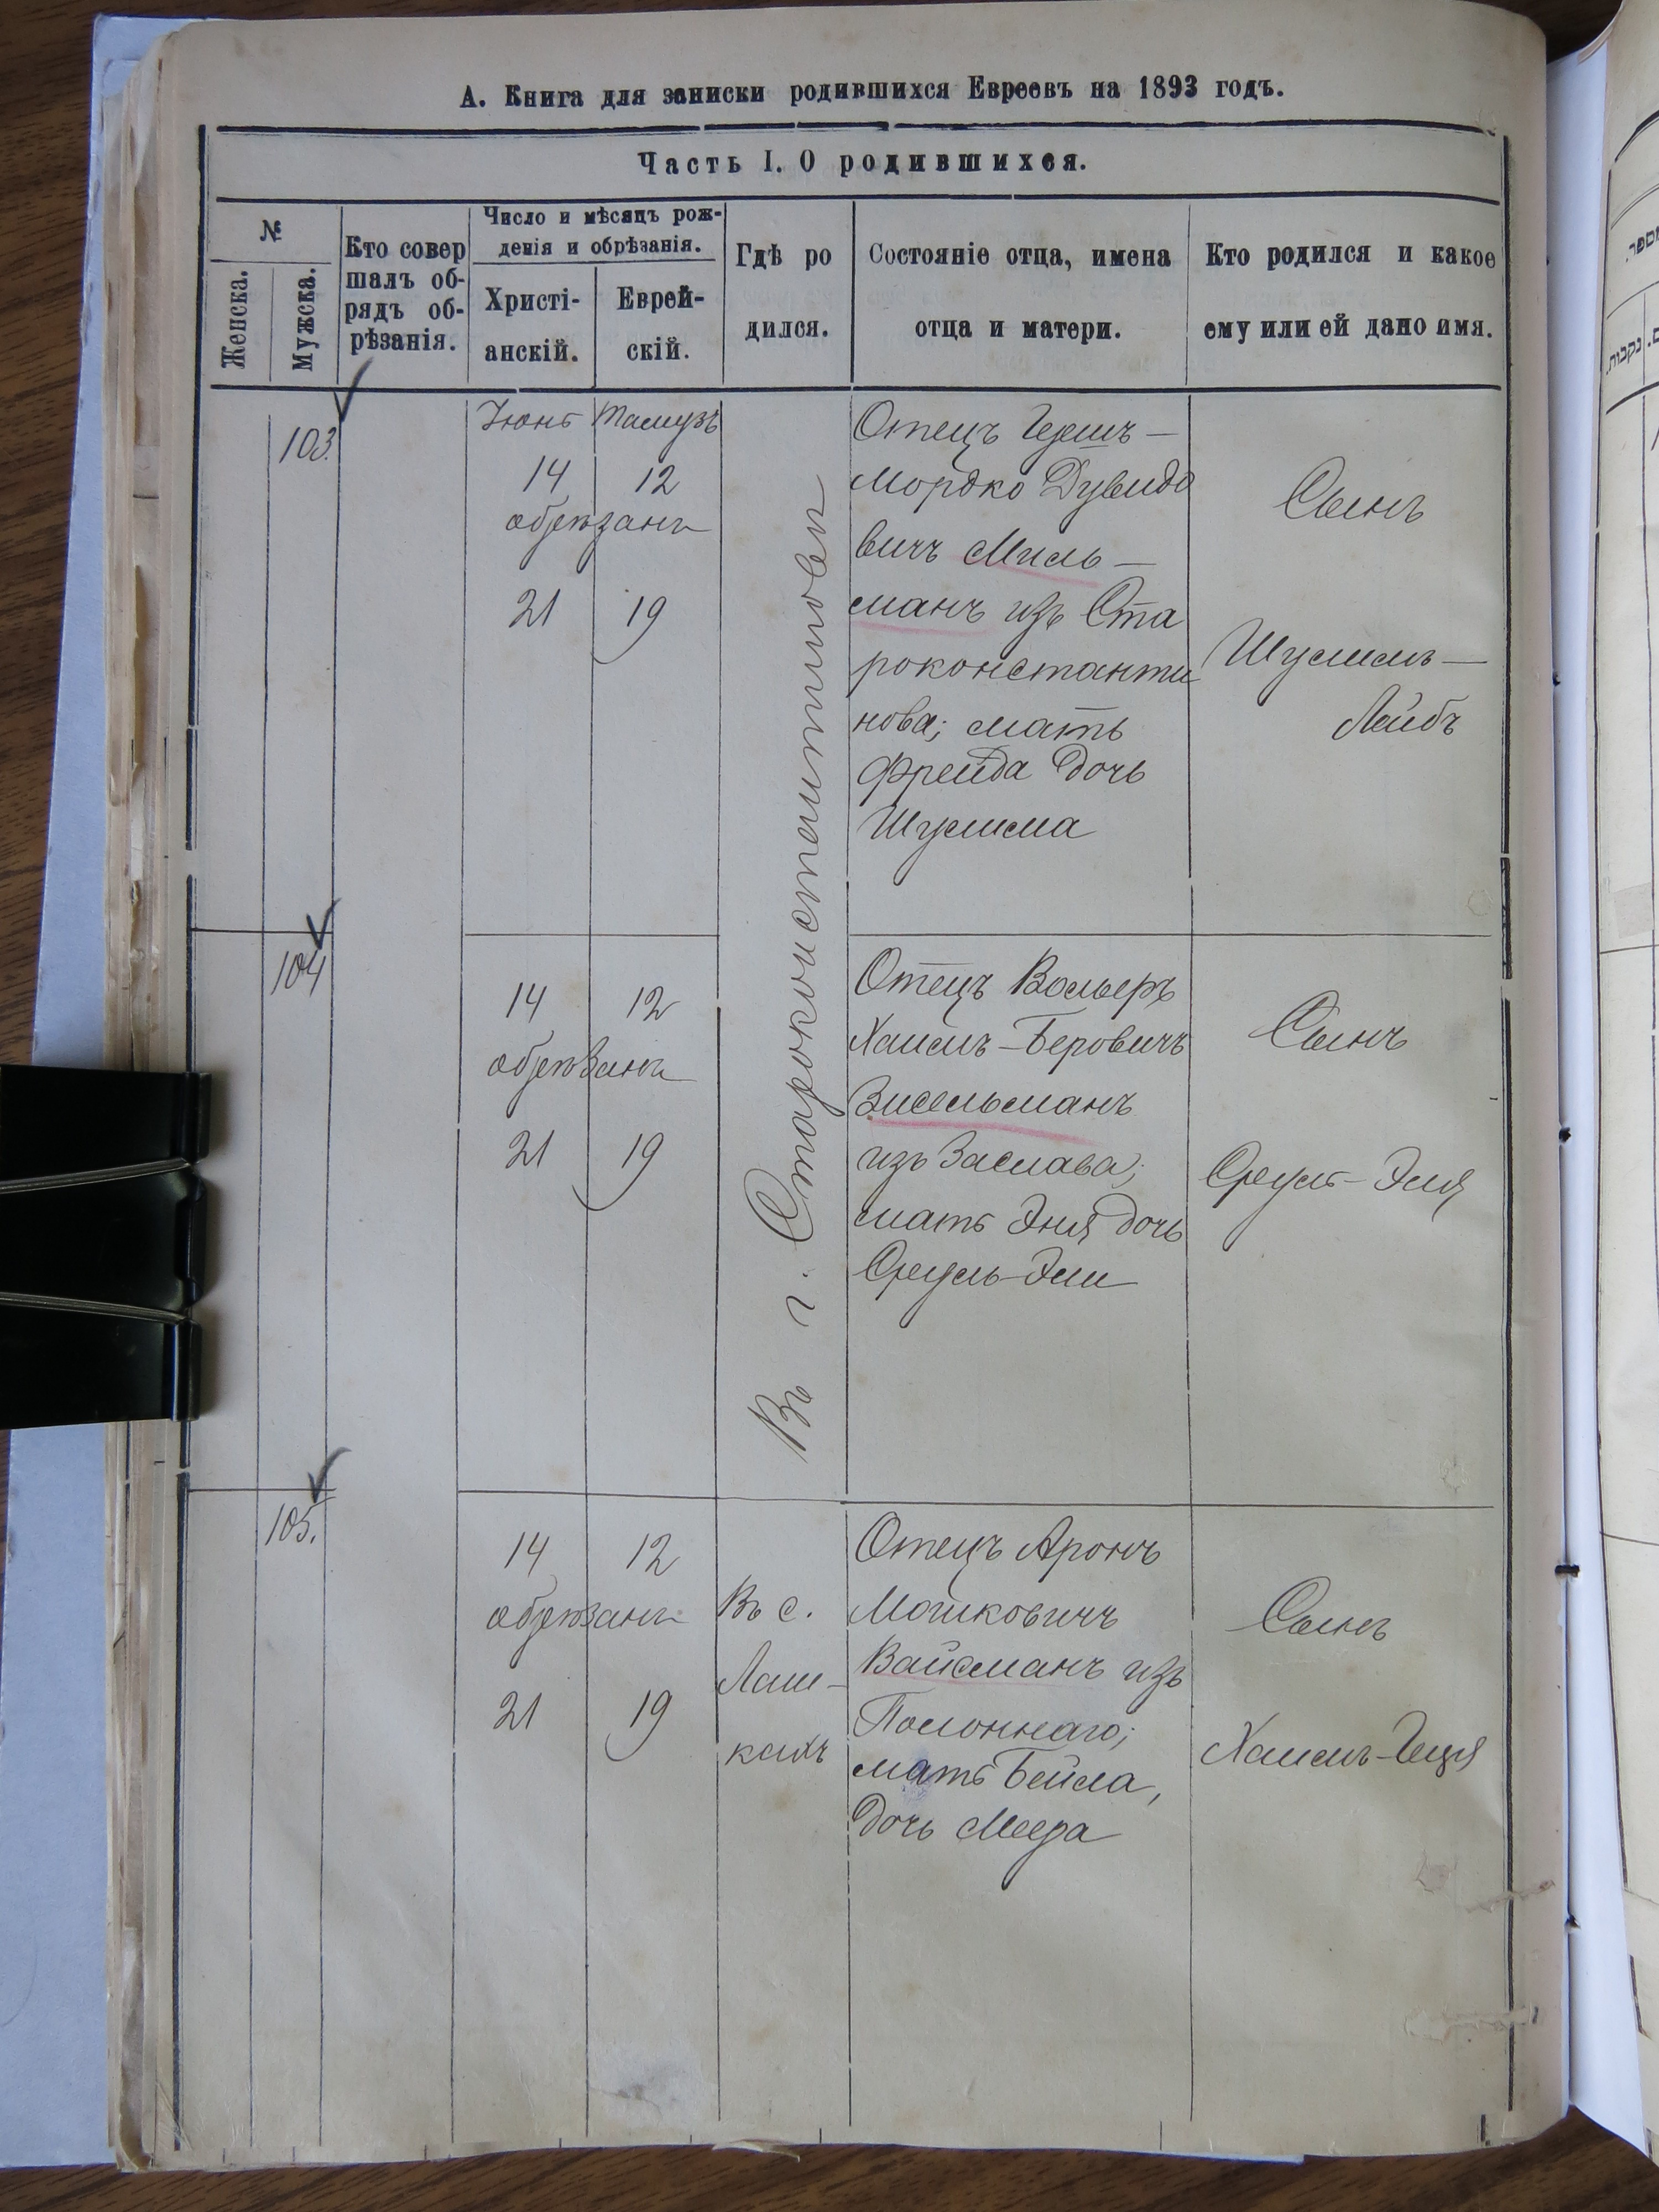 А. Книга для записки родившихся Евреевъ на 1893 годъ.
Часть I. О родившихся.
№
Женска.
Мужска.
Кто совер
шалъ об-
рядъ об-
рѣзанія.
Число и мѣсяцъ рож-
денія и обрѣзанія.
Христі-
анскій.
Еврей-
скій.
Гдѣ ро
дился.
Состояніе отца, имена
отца и матери.
Кто родился и какое
ему или ей дано имя.
103.
Іюнь Тамузъ
14 12
обрѣзанъ
21 19
Въ г. Староконстантиновѣ
Отецъ Гершъ-
Мордко Дувидо
вичъ Миль-
манъ изъ Ста
роконстанти
нова; мать
Фрейда дочь
Шулима
Сынъ
Шулимъ-
Лейбъ
104
14 12
обрѣзанъ
21 19
Отецъ Вольфъ
Хаимъ-Беровичъ
Зисельманъ
изъ Заслава;
мать Эня дочь
Сруль-Эли
Сынъ
Сруль-Эля
105.
14 12
обрѣзанъ
21 19
Въ с.
Лаш-
кахъ
Отецъ Аронъ
Мошковичъ
Вайсманъ изъ
Полоннаго;
мать Бейла,
дочь Меера
Сынъ
Хаимъ-